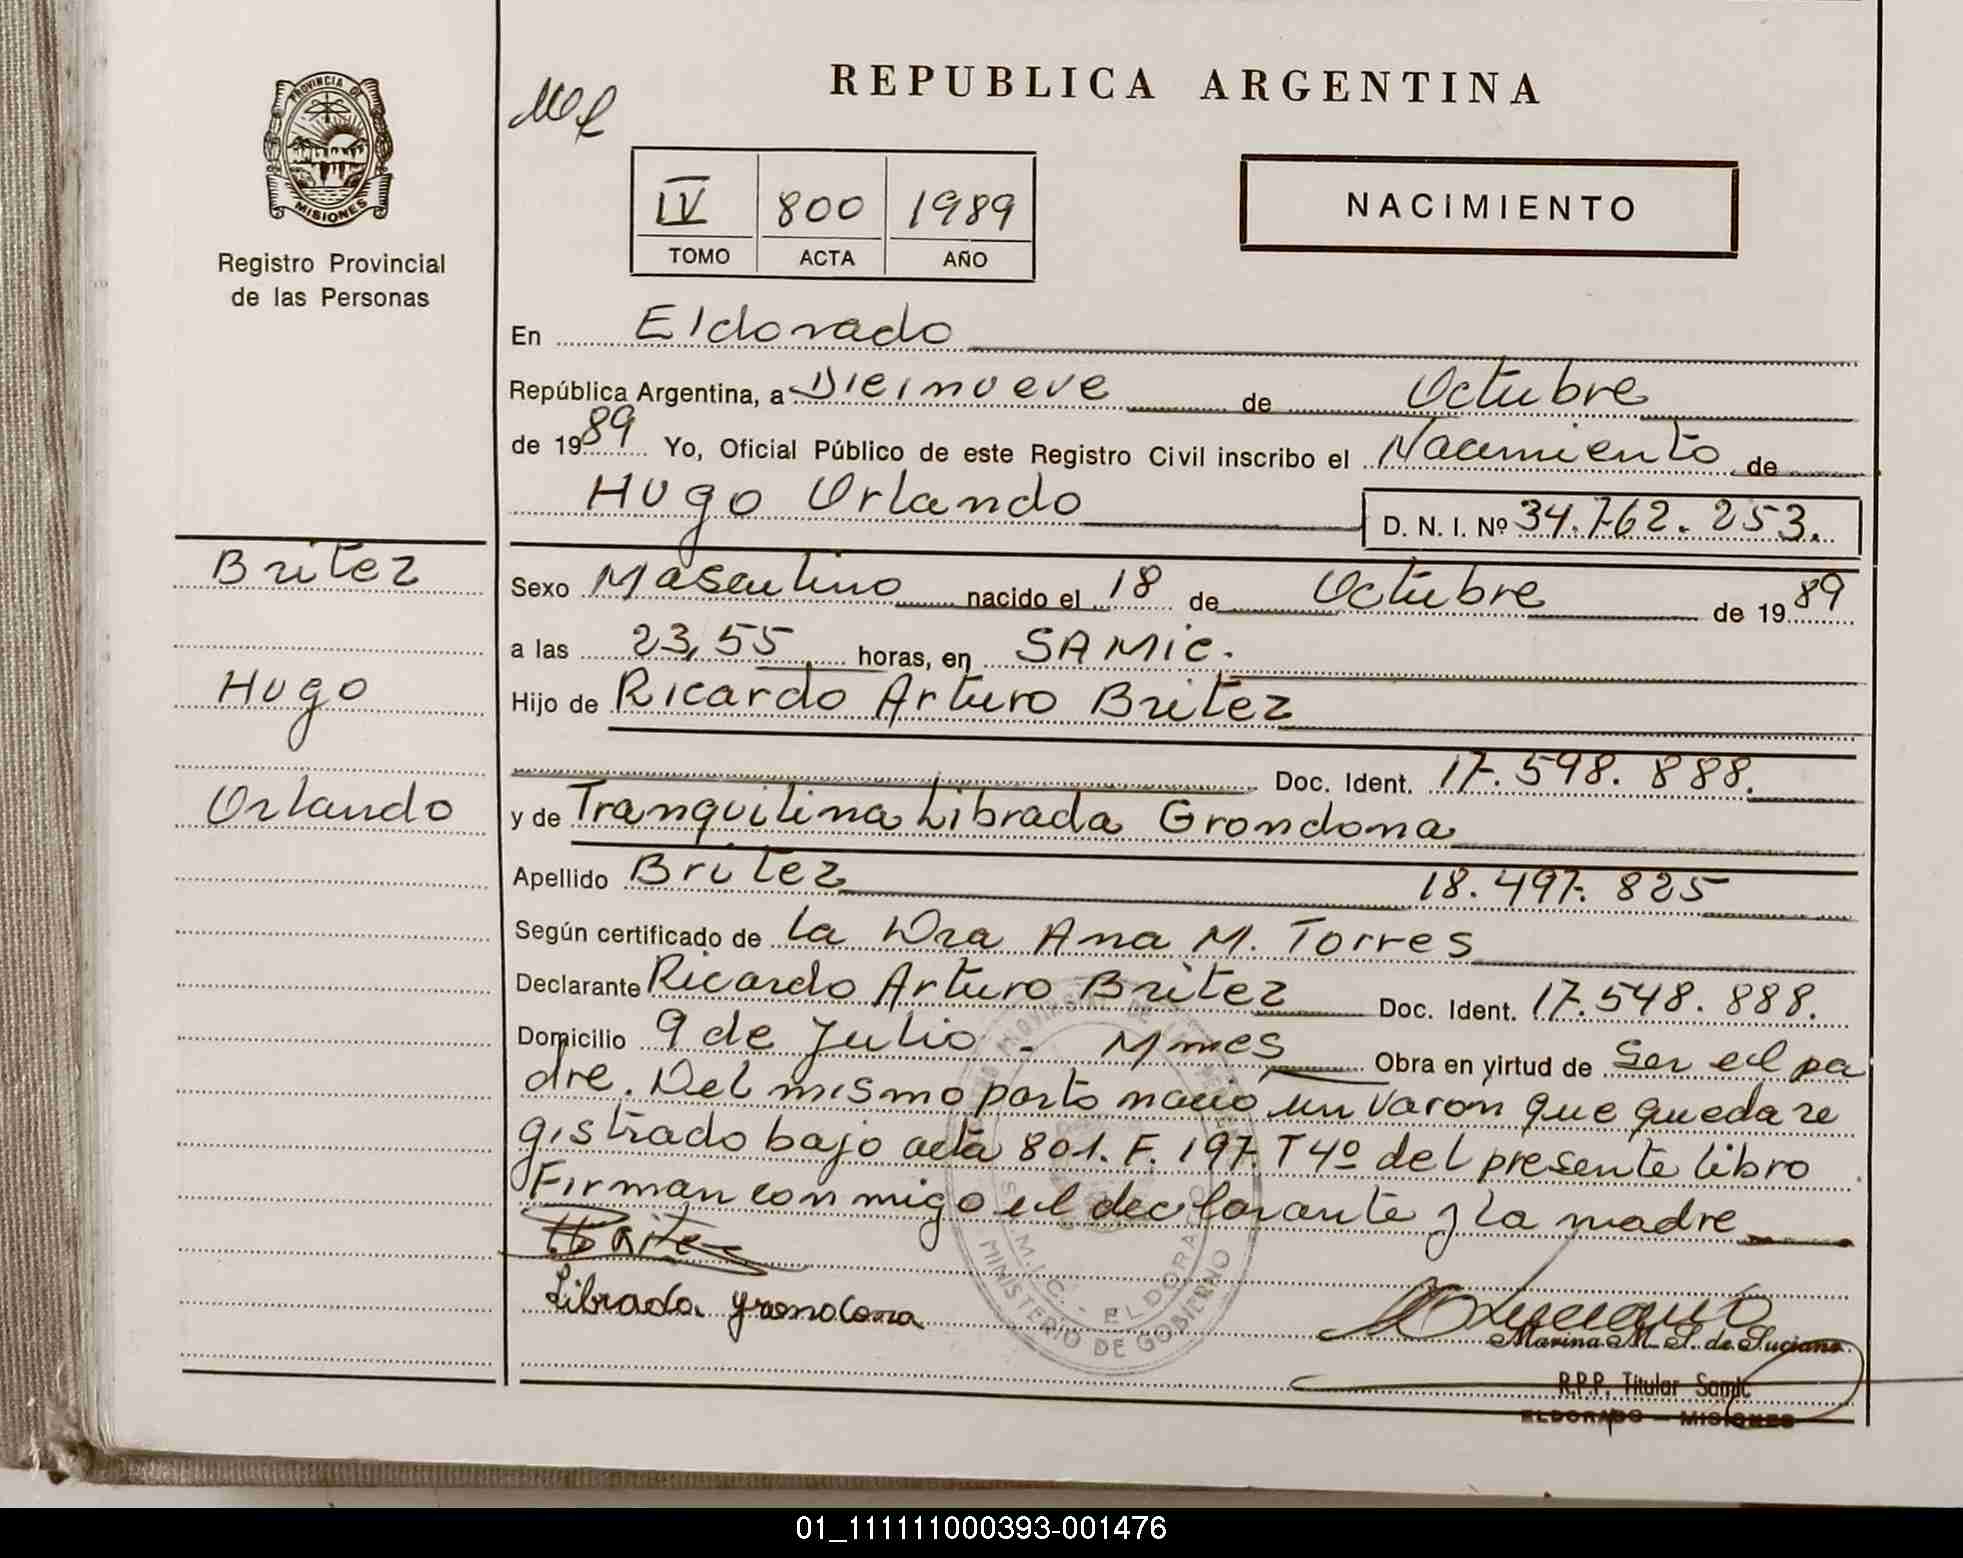 REPUBLICA ARGENTINA
PROVINCIA DE
MISIONES
Registro Provincial
de las Personas
IV 800 1989
TOMO ACTA AÑO
NACIMIENTO
En Eldorado
República Argentina, a Dieinueve de Octubre
de 1989 Yo, Oficial Público de este Registro Civil inscribo el Nacimiento de
Hugo Orlando D. N. I. Nº 34.762.253.
Britez
Hugo
Orlando
Sexo Masculino nacido el 18 de Octubre de 1989
a las 23,55 horas, en SAMIC.
Hijo de Ricardo Arturo Britez
Doc. Ident. 17.598.888.
y de Tranquilina Librada Grondona
Apellido Britez 18.497.825
Según certificado de la Dra Ana M. Torres
Declarante Ricardo Arturo Britez Doc. Ident. 17.548.888.
Domicilio 9 de Julio - Mnes Obra en virtud de ser el pa
dre. Del mismo parto nació un varon que queda re
gistrado bajo acta 801. F. 197. T 4º del presente libro
Firman conmigo el declarante y la madre
Britez
Librada Grondona
S.A.M.I.C. - ELDORADO
MINISTERIO DE GOBIERNO
Marina M. S. de Luciano
R.P.P. Titular Samic
ELDORADO - MISIONES
01_111111000393-001476